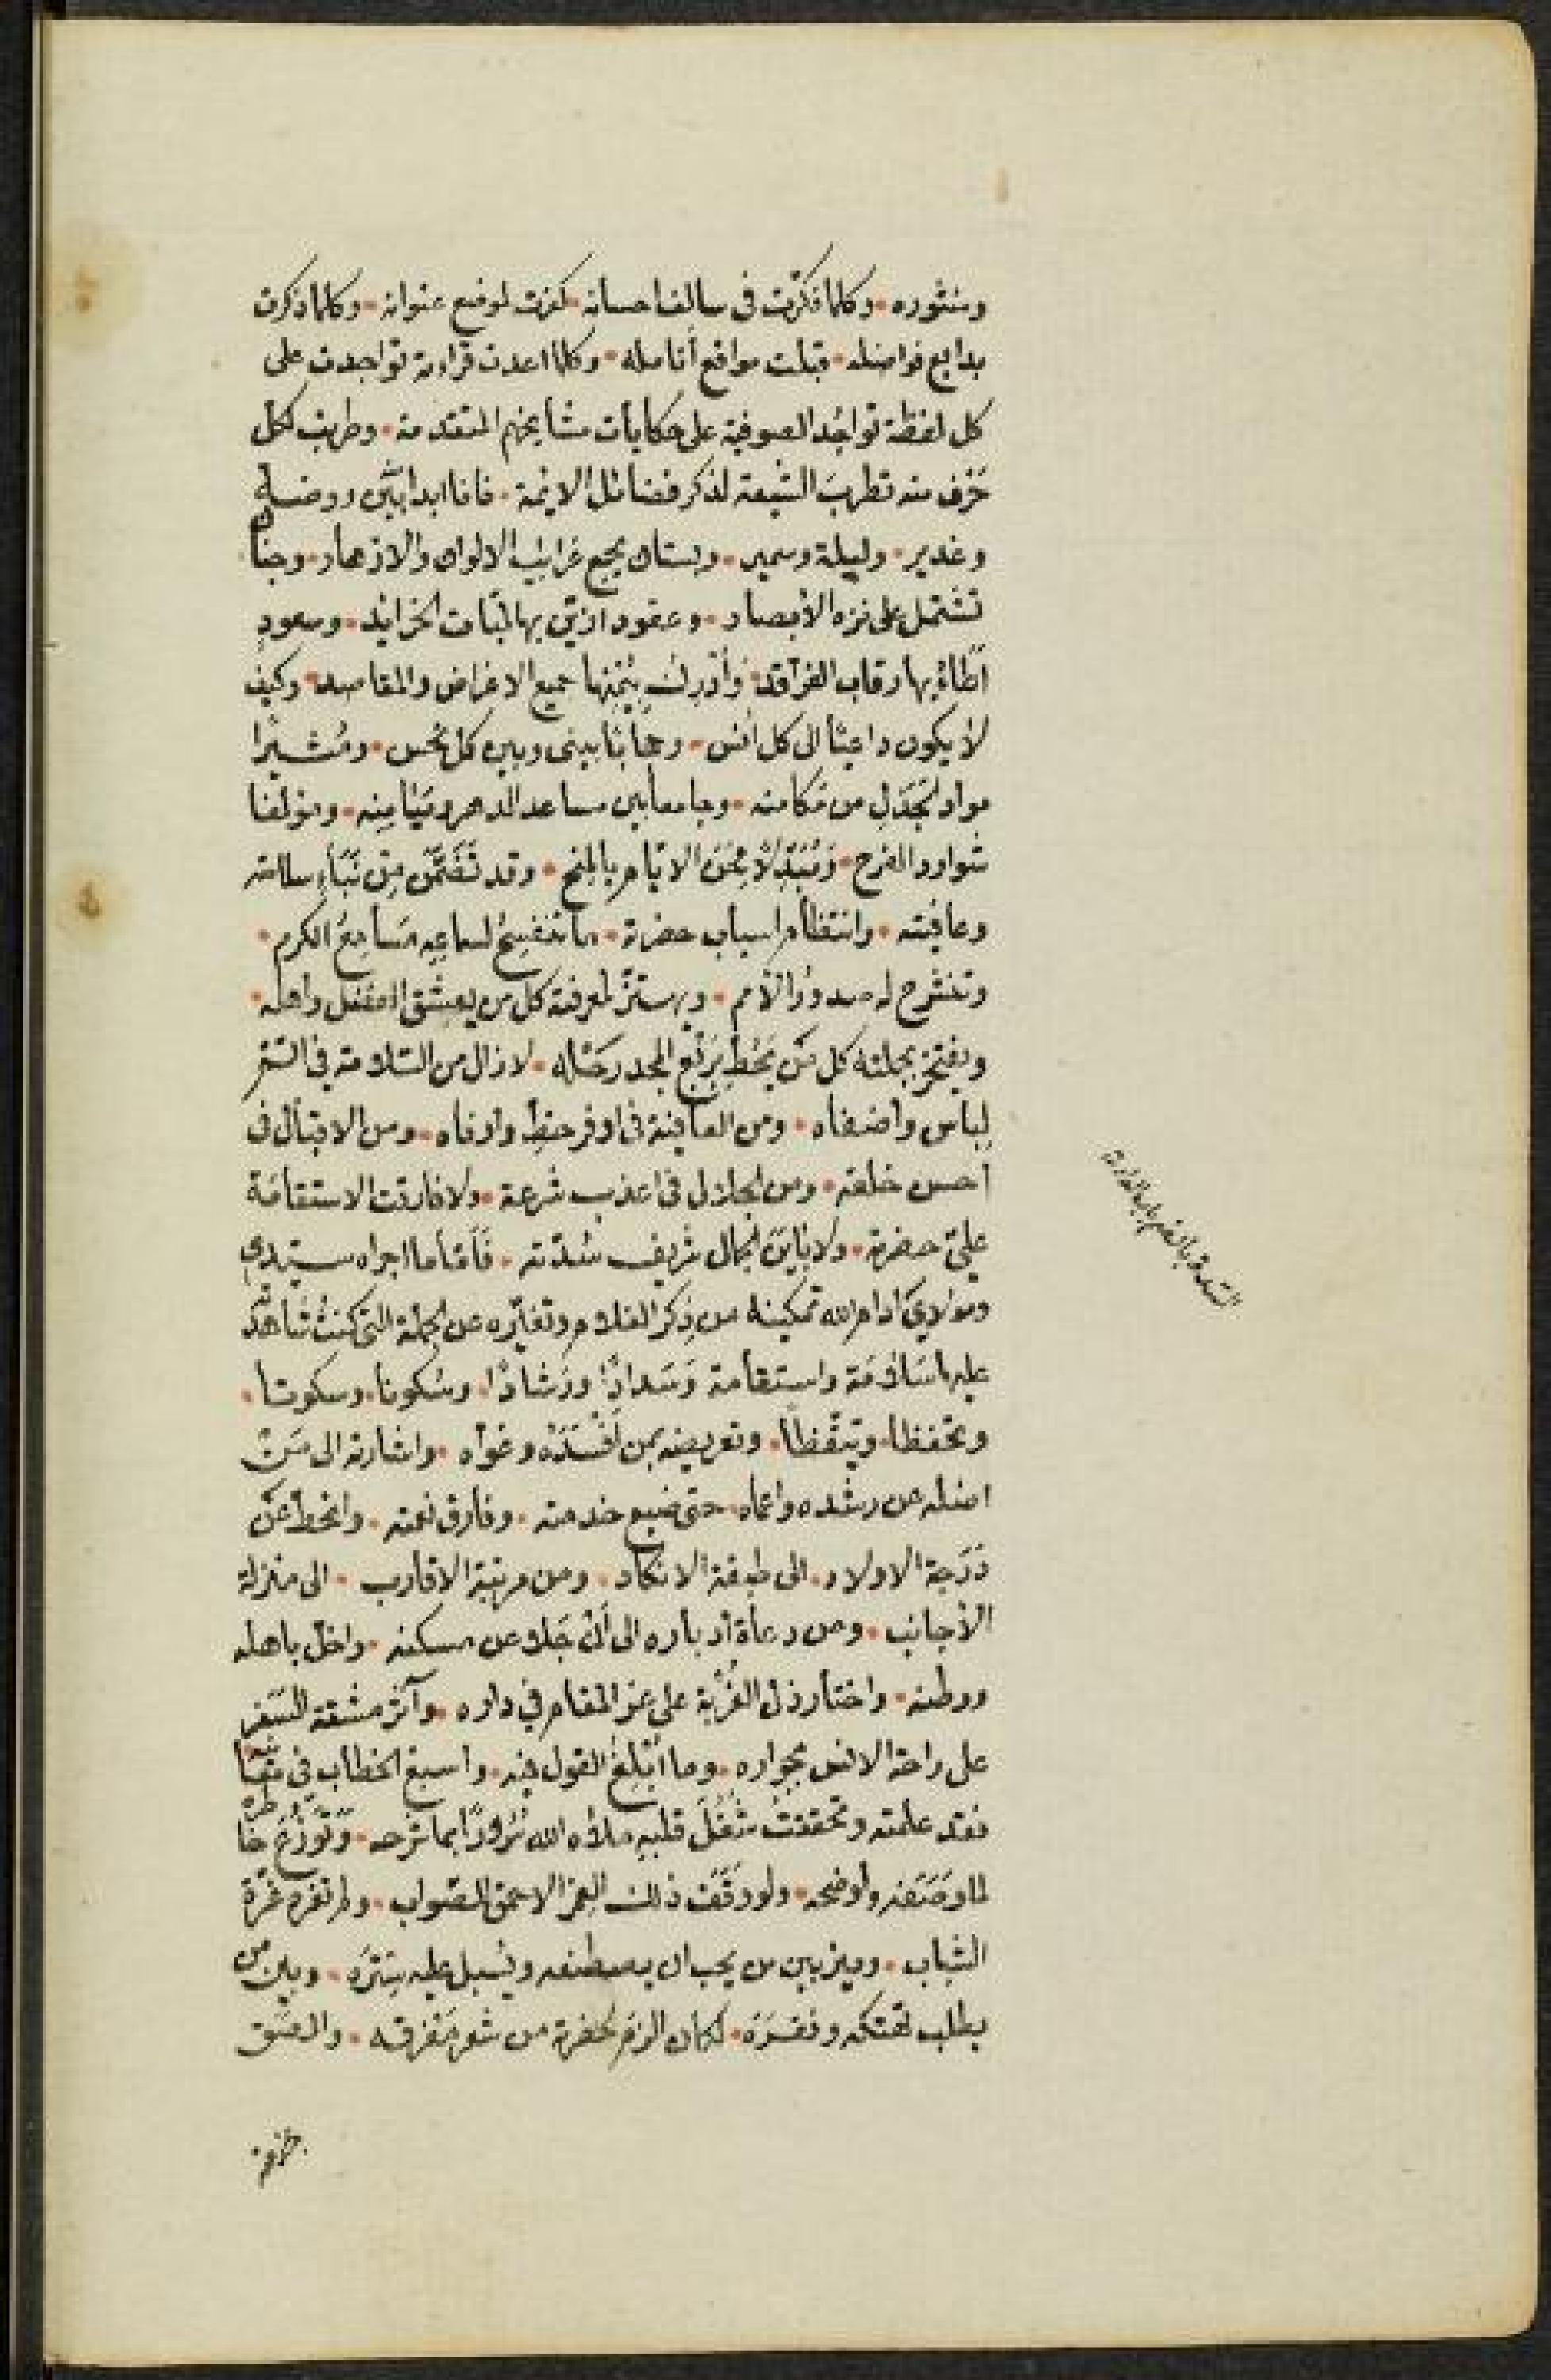 ومنثوره • وكلما فكرت في سالف احسانه • كفرت لوضع عنوانه • وكلما ذكرت
بدايع فواضله • قبلت مواقع أنامله • وكلما اعدت قراءته تواجدت على
كل لفظة تواجُد الصوفية على حكايات مشايخهم المتقدمة • وطربت لكل
حَرْف منه تطربَ الشيعة لذكر فضائل الائمة • فانا ابدا بين روضة
وغدير • وليلة وسمير • وبستان يجمع غرايب الالوان والازهار • وجنان
تشتمل على نزه الابصار • وعقود ازيّن بها لبّات الخرايد • وسعودٍ
اطاء بها رقاب الفراقد • وأدرك بيمنها جميع الاغراض والمقاصد • وكيف
لا يكون داعيًا الى كل انس • وحجابًا بيني وبين كل نحس • ومُثيرًا
مواد الجَذَلِ من مَكامنه • وجامعا بين مساعد الدهر وميامنه • ومؤلفا
شوارد الفرح • ومُبَدِّلا محن الايام بالمنح • وقد تَضَمَّن مِن نَبَاءِ سلامته
وعافيته • وانتظام اسباب حضرته • ما تنفسح لسماعِهِ مَسامِعُ الكرم •
وتنشرح له صدورُ الأمم • ويهتزّ لمعرفته كل من يعشق الفضل واهله •
ويفتخر بجملته كل مَن يَحُط بِرَبْعِ المجد رَحْلَه • لا زال من السلامة في استر
لباس واضفاه • ومن العافية في اوفر حظٍ واوفاه • ومن الاقبال في
احسن خلعة • ومن الجلال في اعذب شرعة • ولا فارقت الاستقامَة
عليّ حضرته • ولا باينَ الجمال شريف سُدّته • فأمّا ما اجراه سيّدي
ومولاي ادام الله تمكينه من ذِكر الغلام وتغيّره عن الجملة التي كنتُ شاهدتُه
عليها سَلامَة واستقامة وَسَدادًا ورَشادًا • وسُكونا • وسكوتا •
وتحفظا • وتيقّظًا • وتعريضه بمن أفسَدَه وغواه • واشارته الى مَنْ
اضله عن رشده واعماه • حتى ضيع خدمته • وفارق نعمته • وانحطّ عَن
دَرَجة الاولاد • الى طبقة الانكاد • ومن مرتبة الاقارب • الى منزلة
الأجانب • ومن دعاة أدباره الى أن جَلا عن مسكنه • واخلّ باهله
ووطنه • واختار ذل الغُرْبة على عز المقام في داره • وآثَر مشقة السَفر
على راحة الانس بجواره • وما أبْلغَ القول فيه • واسبغ الخطاب في معناه
فقد علمته وتحققتُ شُغُلَ قلبهِ ملأه الله سُرورًا بما شرحه • وتَوَزُّعَ خاطره
لما وَصَفه واوضحه • ولو وقف ذلك الغِرّ الاحمق للصواب • ولم تغره غرّة
الشباب • وميز بين من يحب ان يصطنعه ويُسبل عليه سِترَه • وبين من
يطلب تهتكه ونفسَرَه • لكان الزم لحضرته من شعر مَفرِقه • والصَق